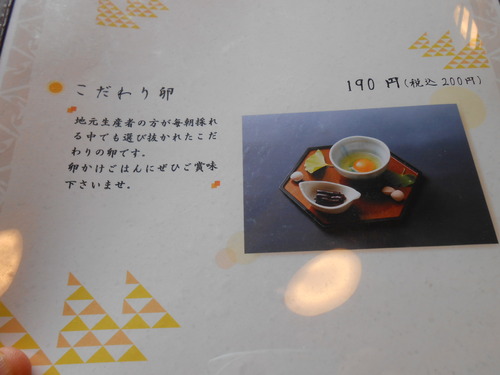 こだわり卵
190 円(税込200円)
地元生産者の方が毎朝採れ
る中でも選び抜かれたこだ
わりの卵です。
卵かけごはんにぜひご賞味
下さいませ。